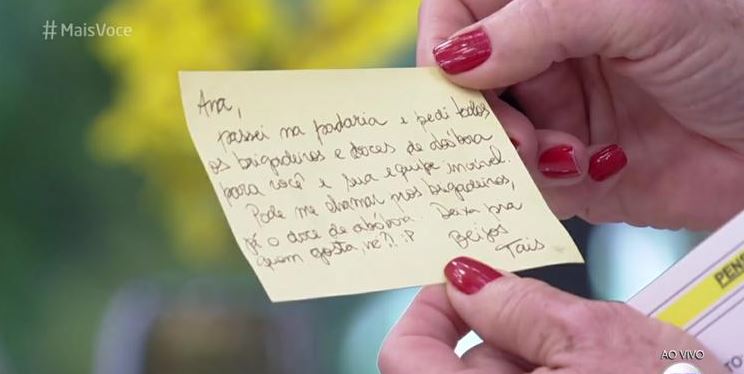 #MaisVoce
Ana,
passei na padaria e pedi todos
os brigadeiros e doces de abóbora
para você e sua equipe incrível.
Pode me chamar nos brigadeiros,
já o doce de abóbora. Deixa pra
quem gosta, né?! :P
Beijos
Tais
PENS
TO
AO VIVO